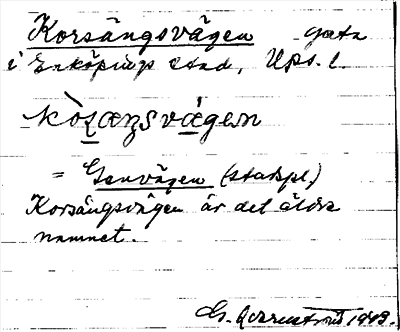 Korsängsvägen gata
i Enköpings stad, Upps. l.
= Genvägen (stadspl.)
Korsängsvägen är det äldre
namnet.
1943.